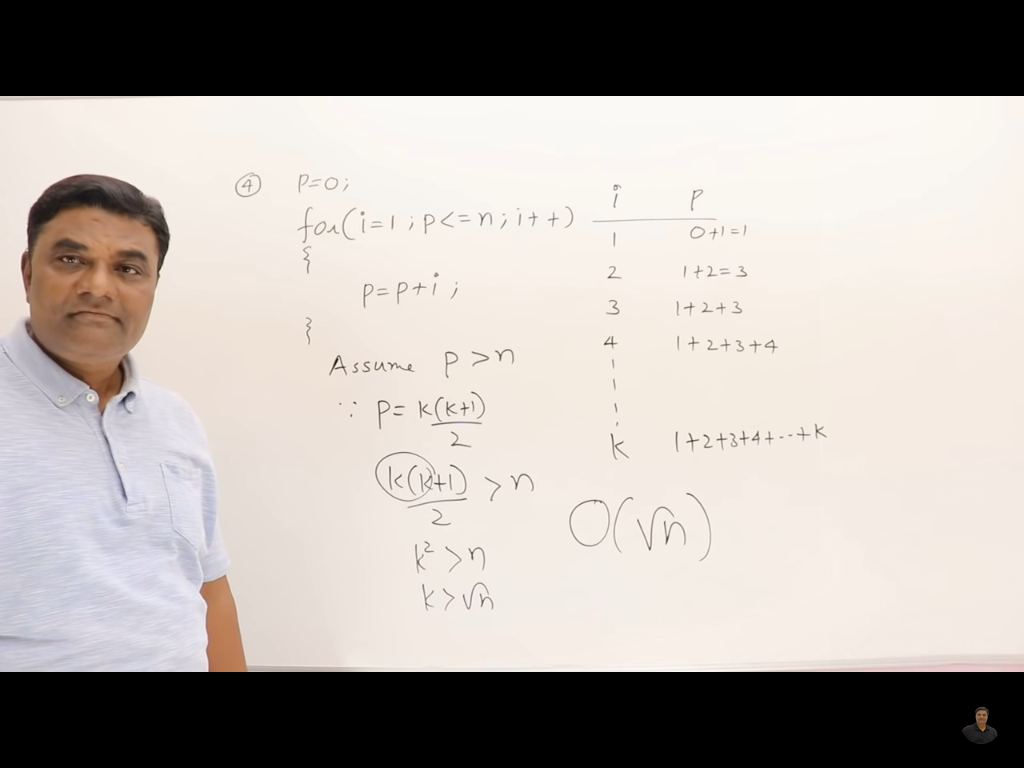 ④ P=0;
for(i=1;p<=n;i++)
{
p=p+i;
}
Assume p>n
∵ p=k(k+1)/2
k(k+1)/2 >n
k²>n
k>√n
i p
1 0+1=1
2 1+2=3
3 1+2+3
4 1+2+3+4
k 1+2+3+4+--+k
O(√n)